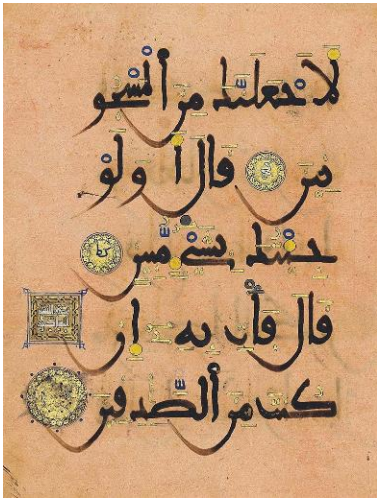 لأجعلنك من ألمسجو
نين قال أولو
جئتك بشىء مبين
قال فأت به إن
كنت من ألصدقين